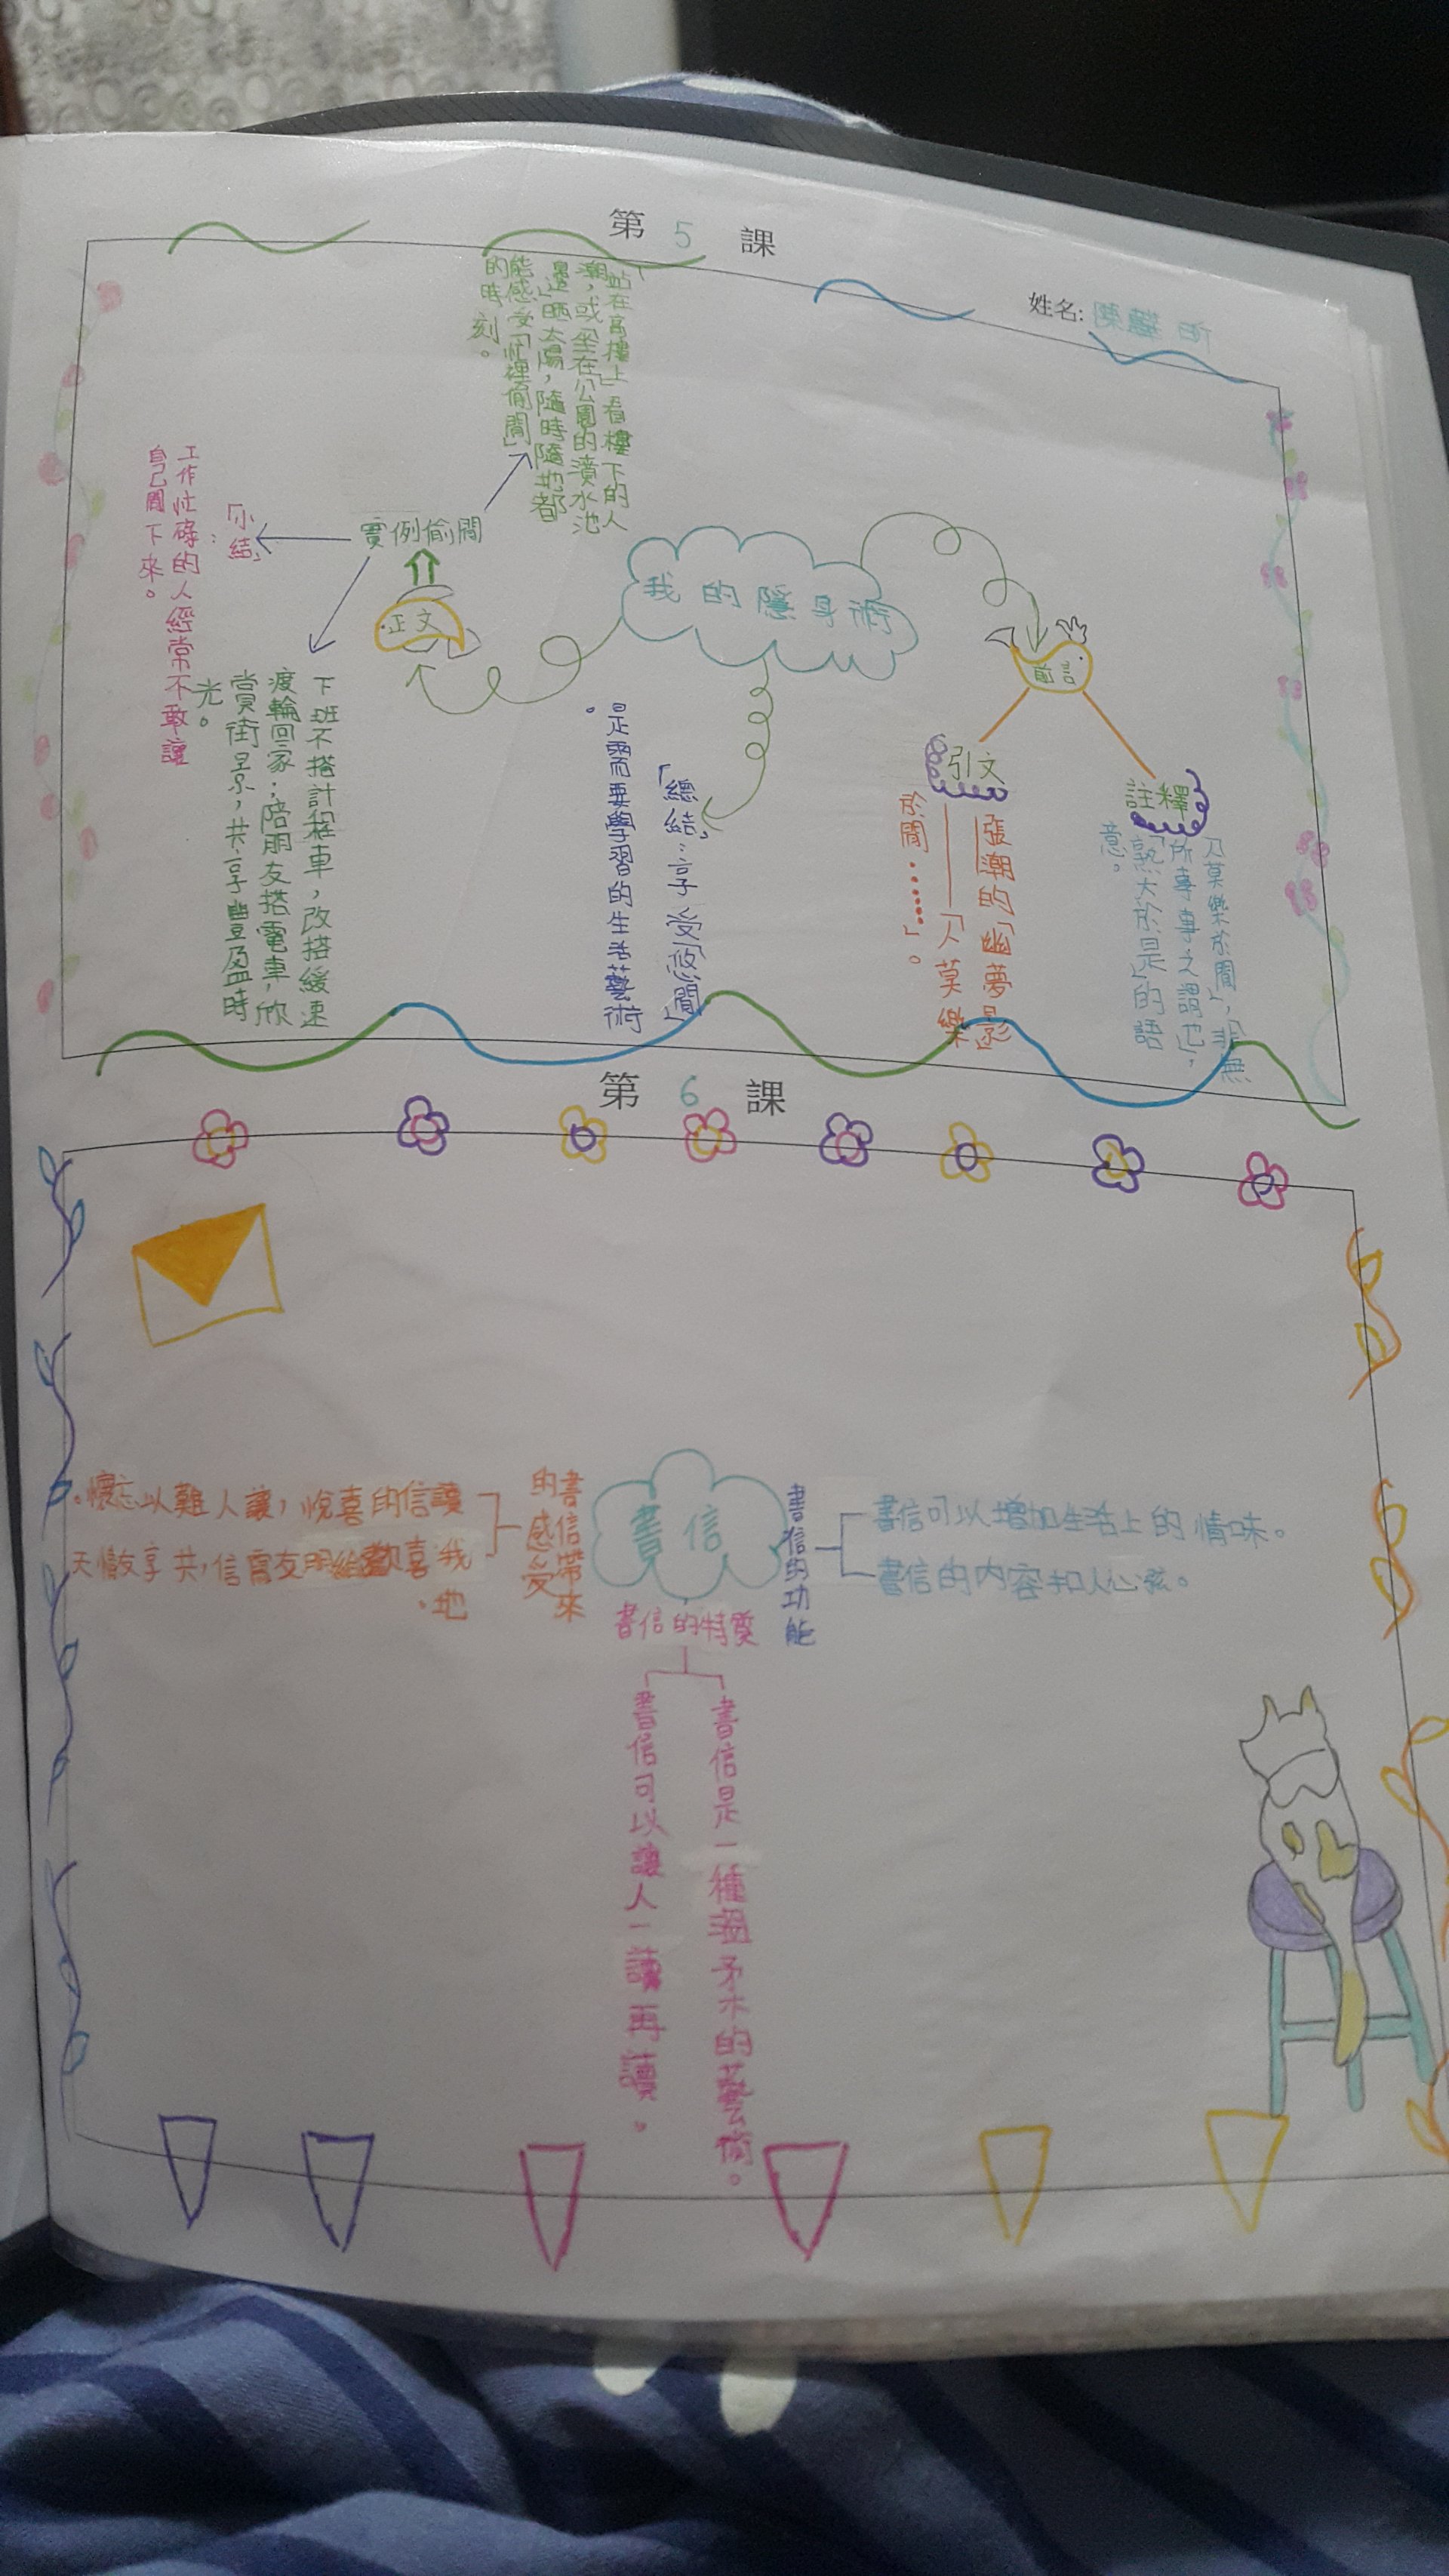 第 5 課
姓名:
我的隱身術
前言
註釋
「人莫樂於閒」,「非無
所事事之謂也」,
「孰大於是」的語
意。
引文
張潮的「幽夢影」
——「人莫樂
於閒‧‧‧‧‧‧」。
「總結」:享受「悠閒」
是需要學習的生活藝術
。
正文
實例偷閒
「站在高樓上」看樓下的人
潮,或「坐在公園的濆水池
邊」晒太陽,隨時隨地都
能感受「忙裡偷閒」
的時刻。
下班不搭計程車,改搭緩速
渡輪回家;陪朋友搭電車,欣
賞街景,共享豐盈時
光。
「小結」:
工作忙碌的人經常不敢讓
自己閒下來。
第 6 課
書信
書信的功能
書信可以增加生活上的情味。
書信的內容扣人心弦。
書信的特質
書信是一種溫柔的藝術。
書信可以讓人一讀再讀。
書信帶來
的感受
讀信的喜悅,讓人難以忘懷。
我喜歡給朋友寫信,共享友情天
地。